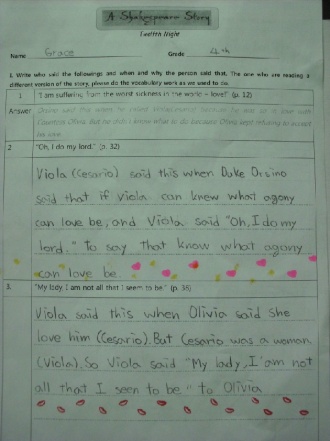 A Shakespeare Story
Twelfth Night
Name Grace Grade 4th
I. Write who said the followings and when and why the person said that. The one who are reading a
different version of the story, please do the vocabulary work as we used to do.
1 "I am suffering from the worst sickness in the world – love!" (p. 12)
Answer Orsino said this when he asked because he was so in love with
Countess Olivia. But he didn't know what to do because Olivia kept refusing to accept
his love.
2 "Oh, I do my lord." (p. 32)
Viola (Cesario) said this when Duke Orsino
said that if Viola can knew what agony
can love be, and Viola said "Oh, I do my
lord." to say that know what agony
can love be.
3. "My lady, I am not all that I seem to be." (p. 36)
Viola said this when Olivia said She
love him (Cesario). But Cesario was a woman
(Viola). So Viola said "My lady, I am not
all that I seen to be" to Olivia